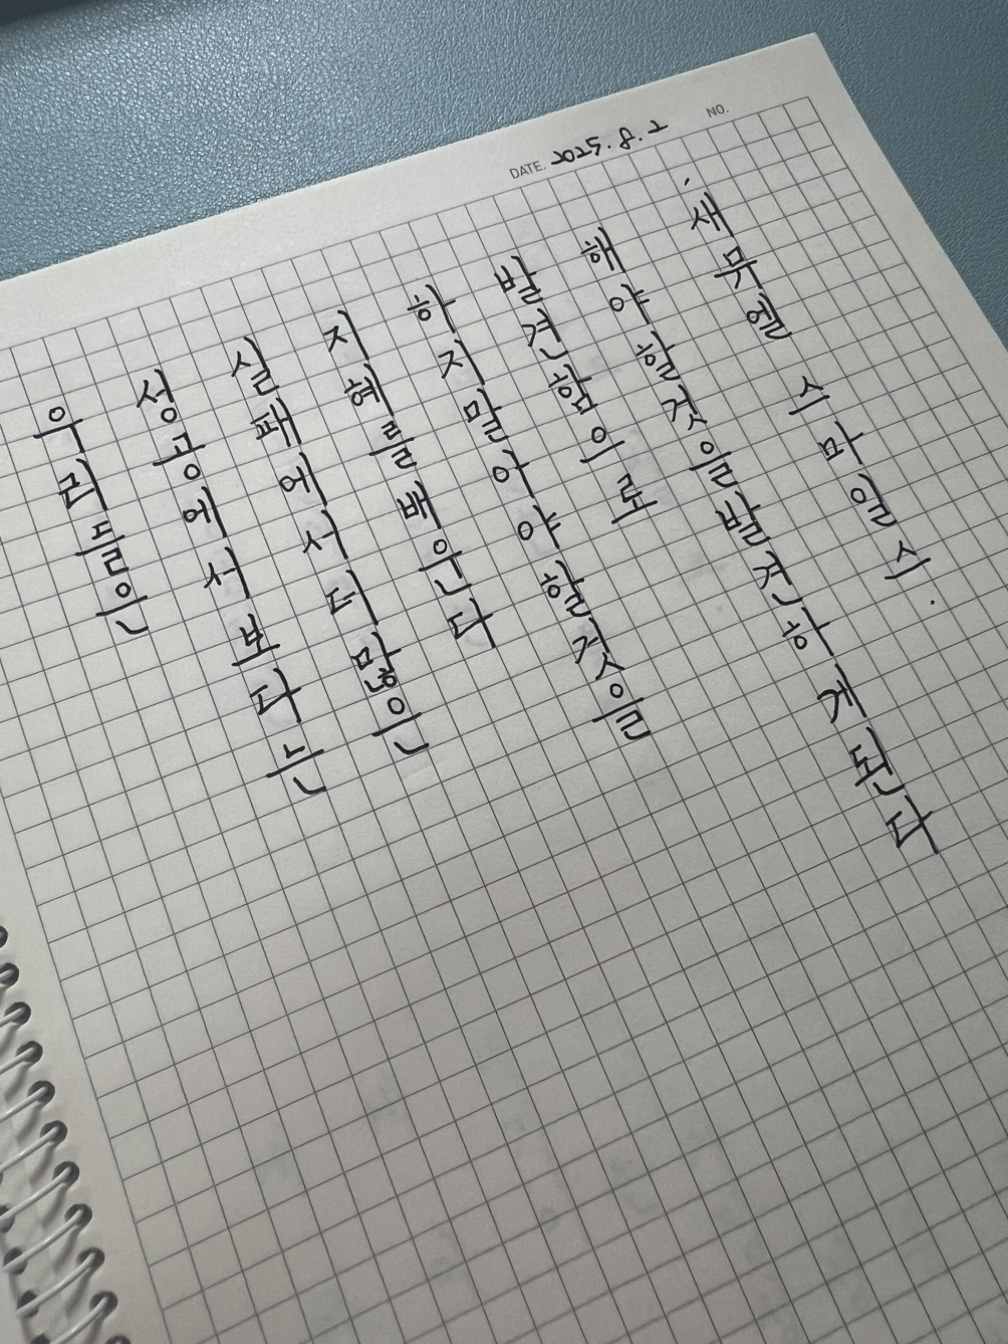 DATE. 2025.8.2
NO.
우리들은
성공에서보다는
실패에서더많은
지혜를배운다
하지말아야할것을
발견함으로
해야할것을발견하게된다
·새뮤엘 스마일스.